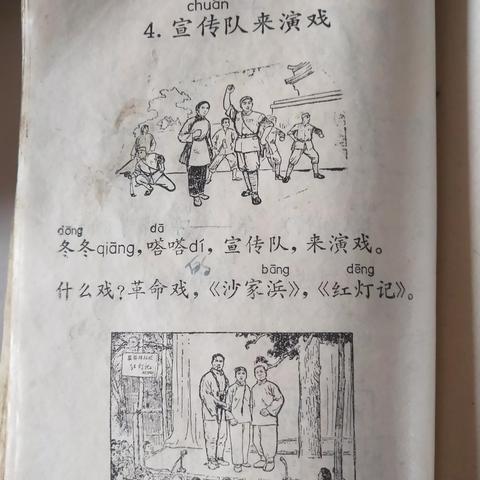 chuán
4. 宣传队来演戏
dōng dā
冬冬qiāng，嗒嗒dí，宣传队，来演戏。
bāng dēng
什么戏？革命戏，《沙家浜》，《红灯记》。
红灯记